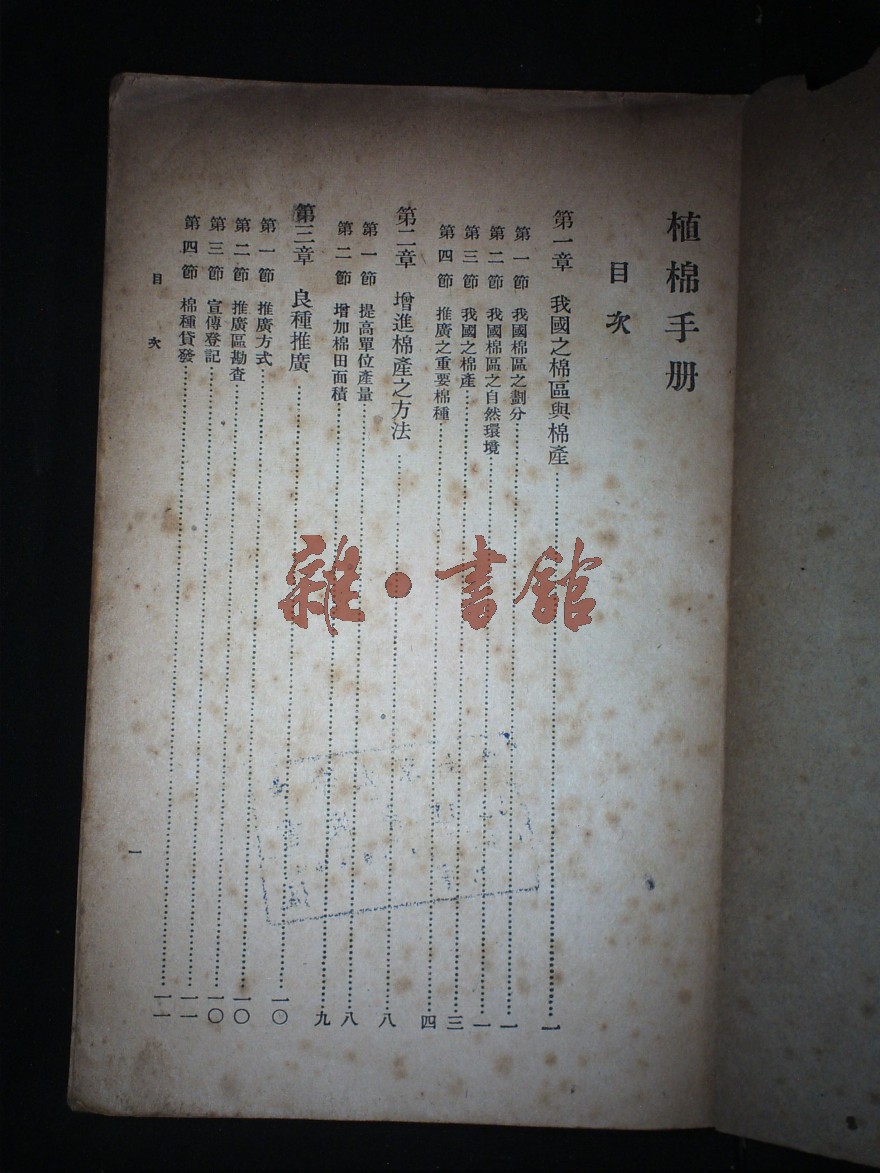 植棉手册
目次
第一章 我國之棉區與棉產……一
第一節 我國棉區之劃分……一
第二節 我國棉區之自然環境……一
第三節 我國之棉產……三
第四節 推廣之重要棉種……四
第二章 增進棉產之方法……八
第一節 提高單位產量……八
第二節 增加棉田面積……九
第三章 良種推廣……一〇
第一節 推廣方式……一〇
第二節 推廣區勘查……一〇
第三節 宣傳登記……一一
第四節 棉種貸發……一一
目次
一
雜·書館